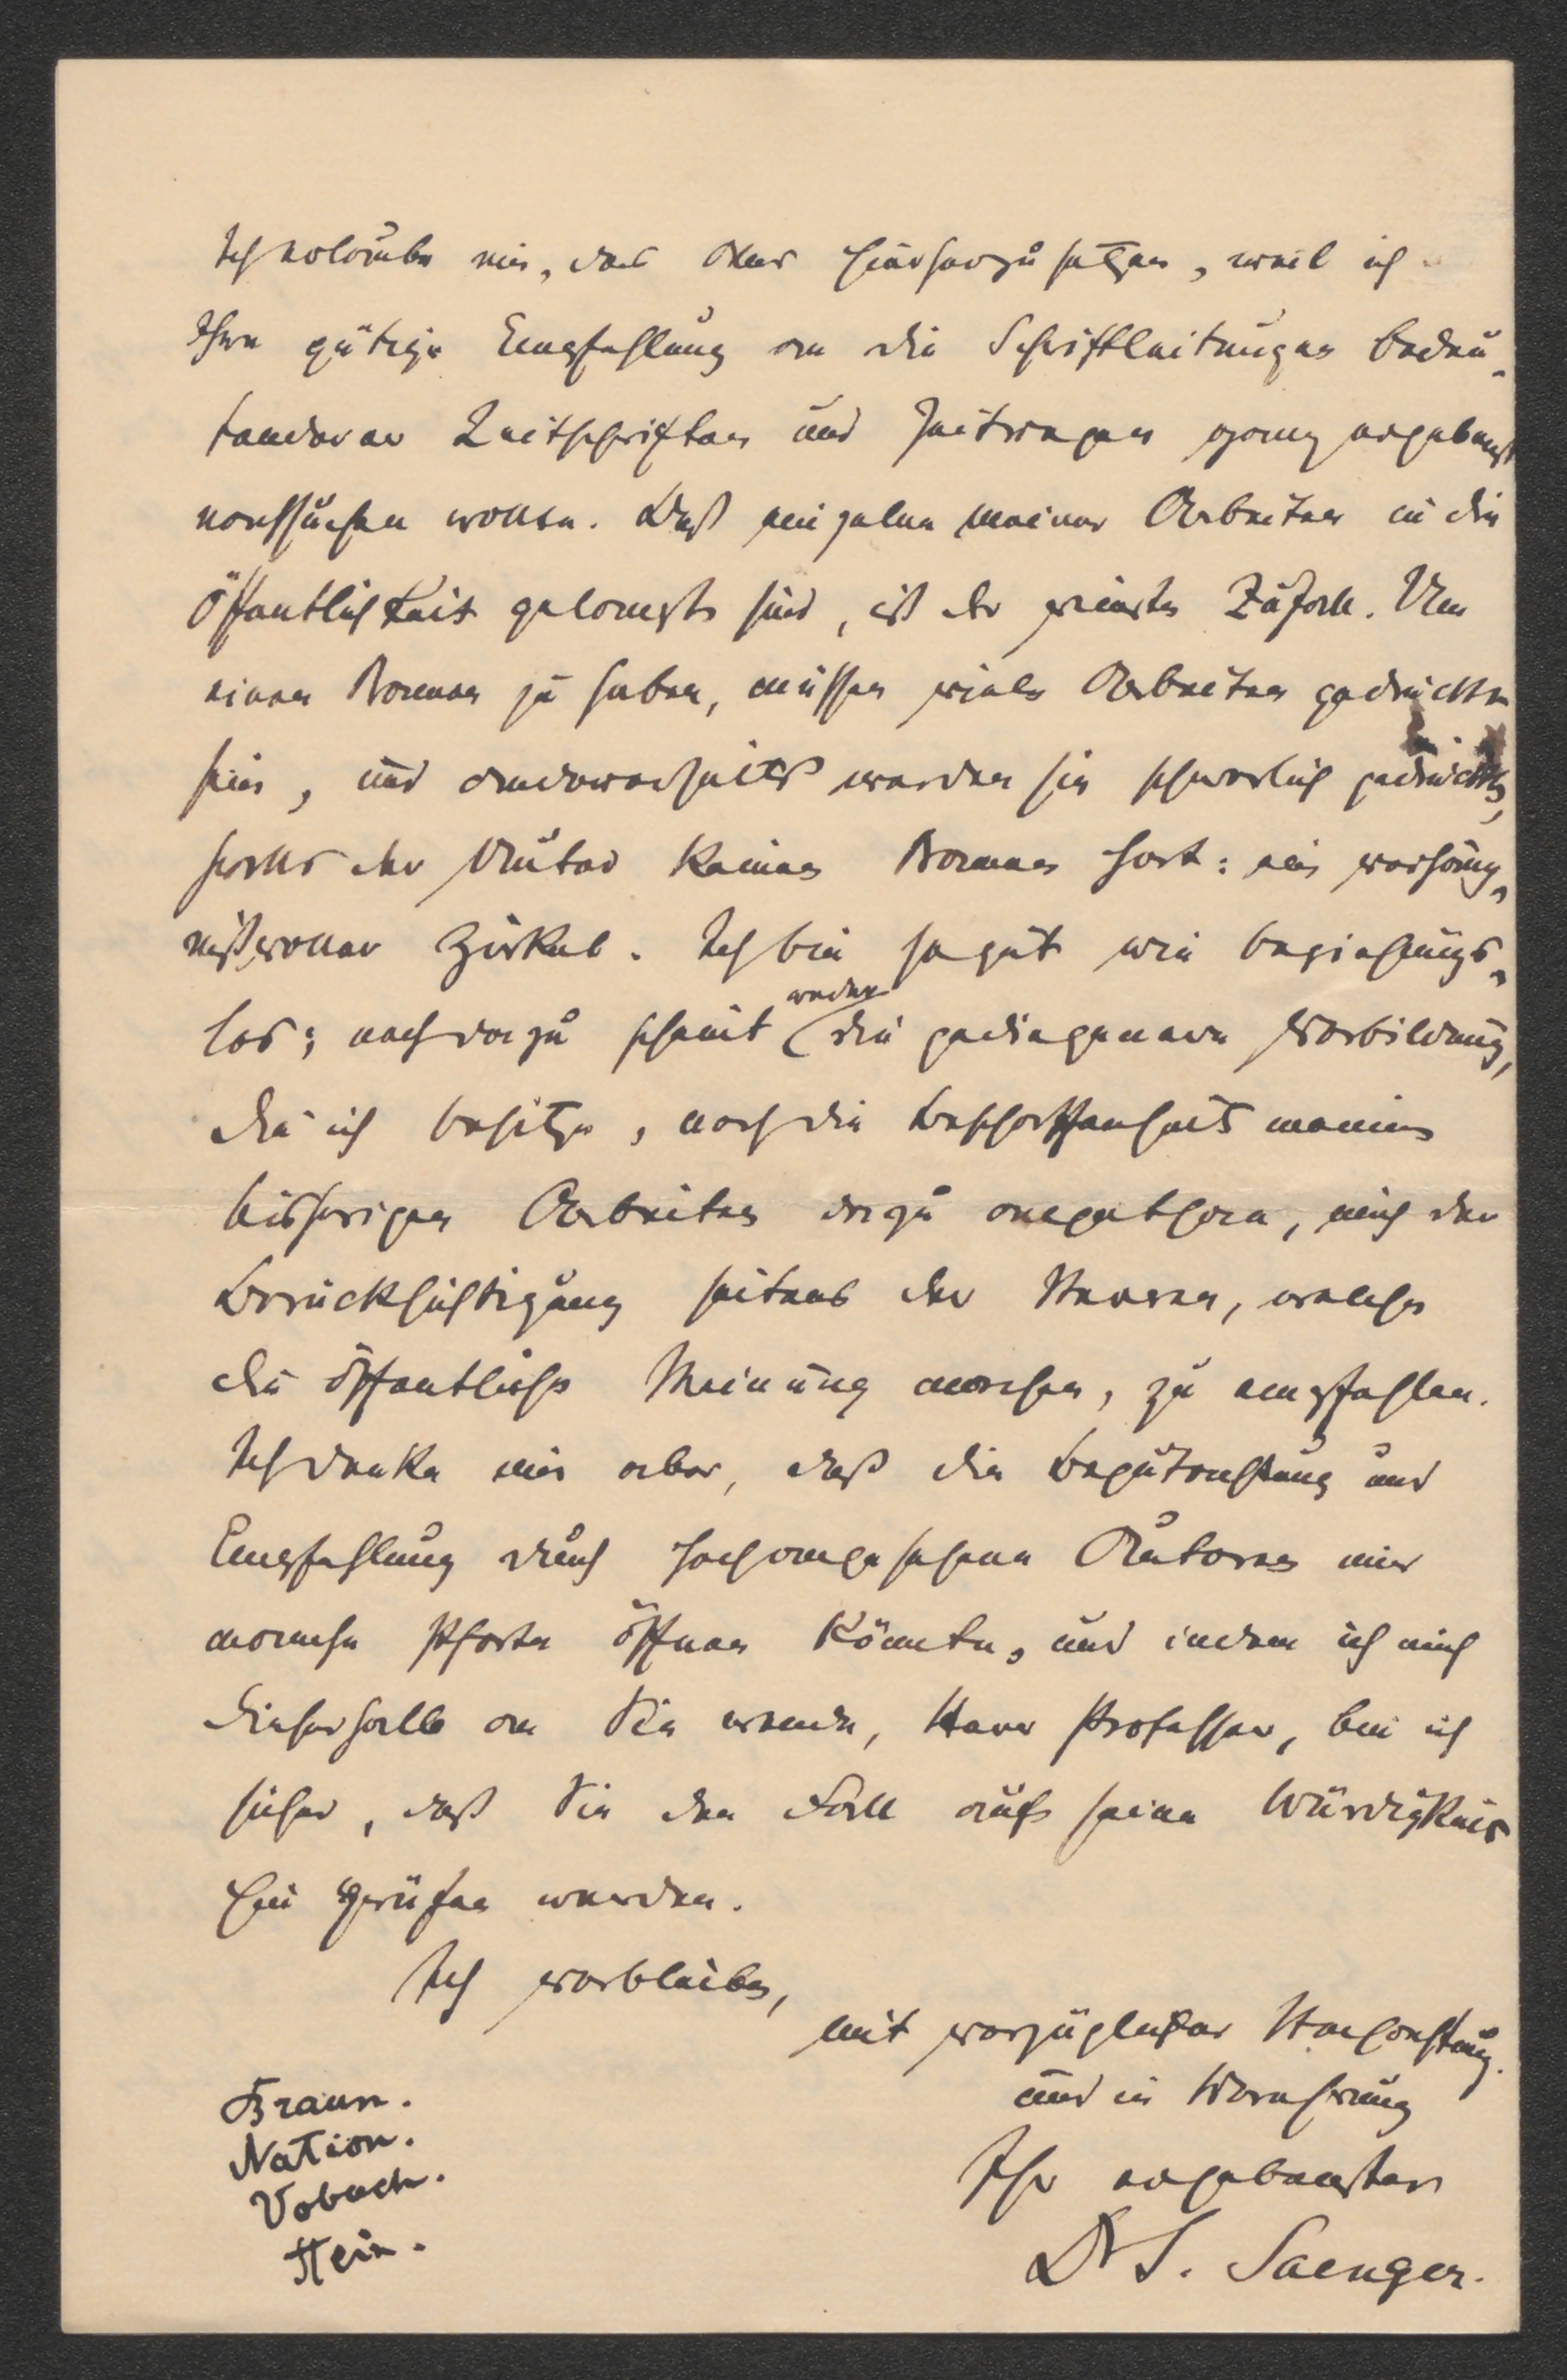 Ich erlaube mir, das Obige hierherzusetzen, weil ich
Ihre gütige Empfehlung an die Schriftleitungen bedeu-
tenderer Zeitschriften und Zeitungen ganz ergebenst
nachsuchen wollte. Daß einzelne meiner Arbeiten in die
Öffentlichkeit gelangt sind, ist der reinste Zufall. Um
einen Namen zu haben, müssen viele Arbeiten gedruckt
sein, und andererseits werden sie schwerlich gedruckt,
falls der Autor keinen Namen hat: ein verhäng-
nißvoller Zirkel. Ich bin so gut wie beziehungs-
los; noch dazu scheint weder die gediegenere Vorbildung,
die ich besitze, noch die Beschaffenheit meiner
bisherigen Arbeiten dazu angethan, mich der
Berücksichtigung seitens der Herren, welche
die öffentliche Meinung machen, zu empfehlen.
Ich denke mir aber, daß die Begutachtung und
Empfehlung durch hochangesehene Autoren mir
manche Pforte öffnen könnte, und indem ich mich
dieserhalb an Sie wende, Herr Professor, bin ich
sicher, daß Sie den Fall auf seine Würdigkeit
hin prüfen werden.
Ich verbleibe,
mit vorzüglicher Hochachtung
und in Verehrung
Ihr ergebenster
Dr S. Saenger.
Braun.
Nation.
Vobach.
Stein.